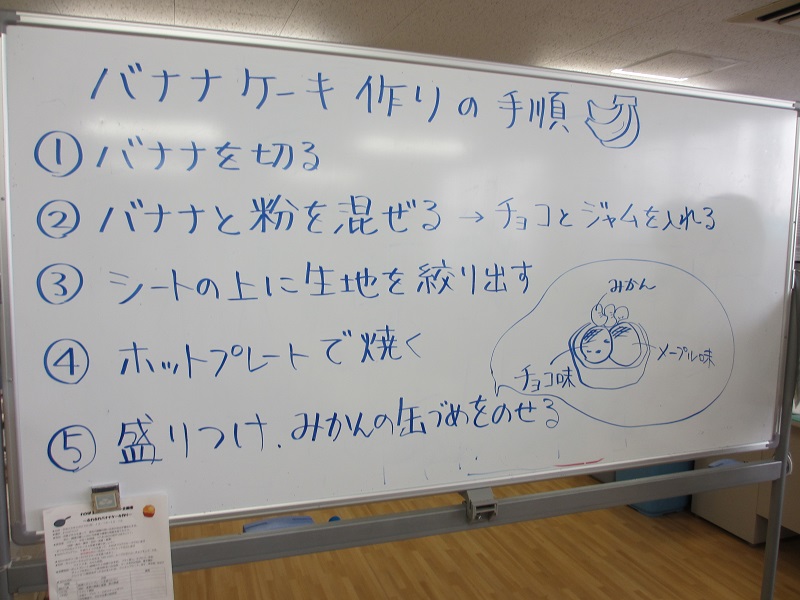 バナナケーキ作りの手順
①バナナを切る
②バナナと粉を混ぜる→チョコとジャムを入れる
③シートの上に生地を絞り出す
④ホットプレートで焼く
⑤盛りつけ、みかんの缶づめをのせる
みかん
チョコ味
メープル味